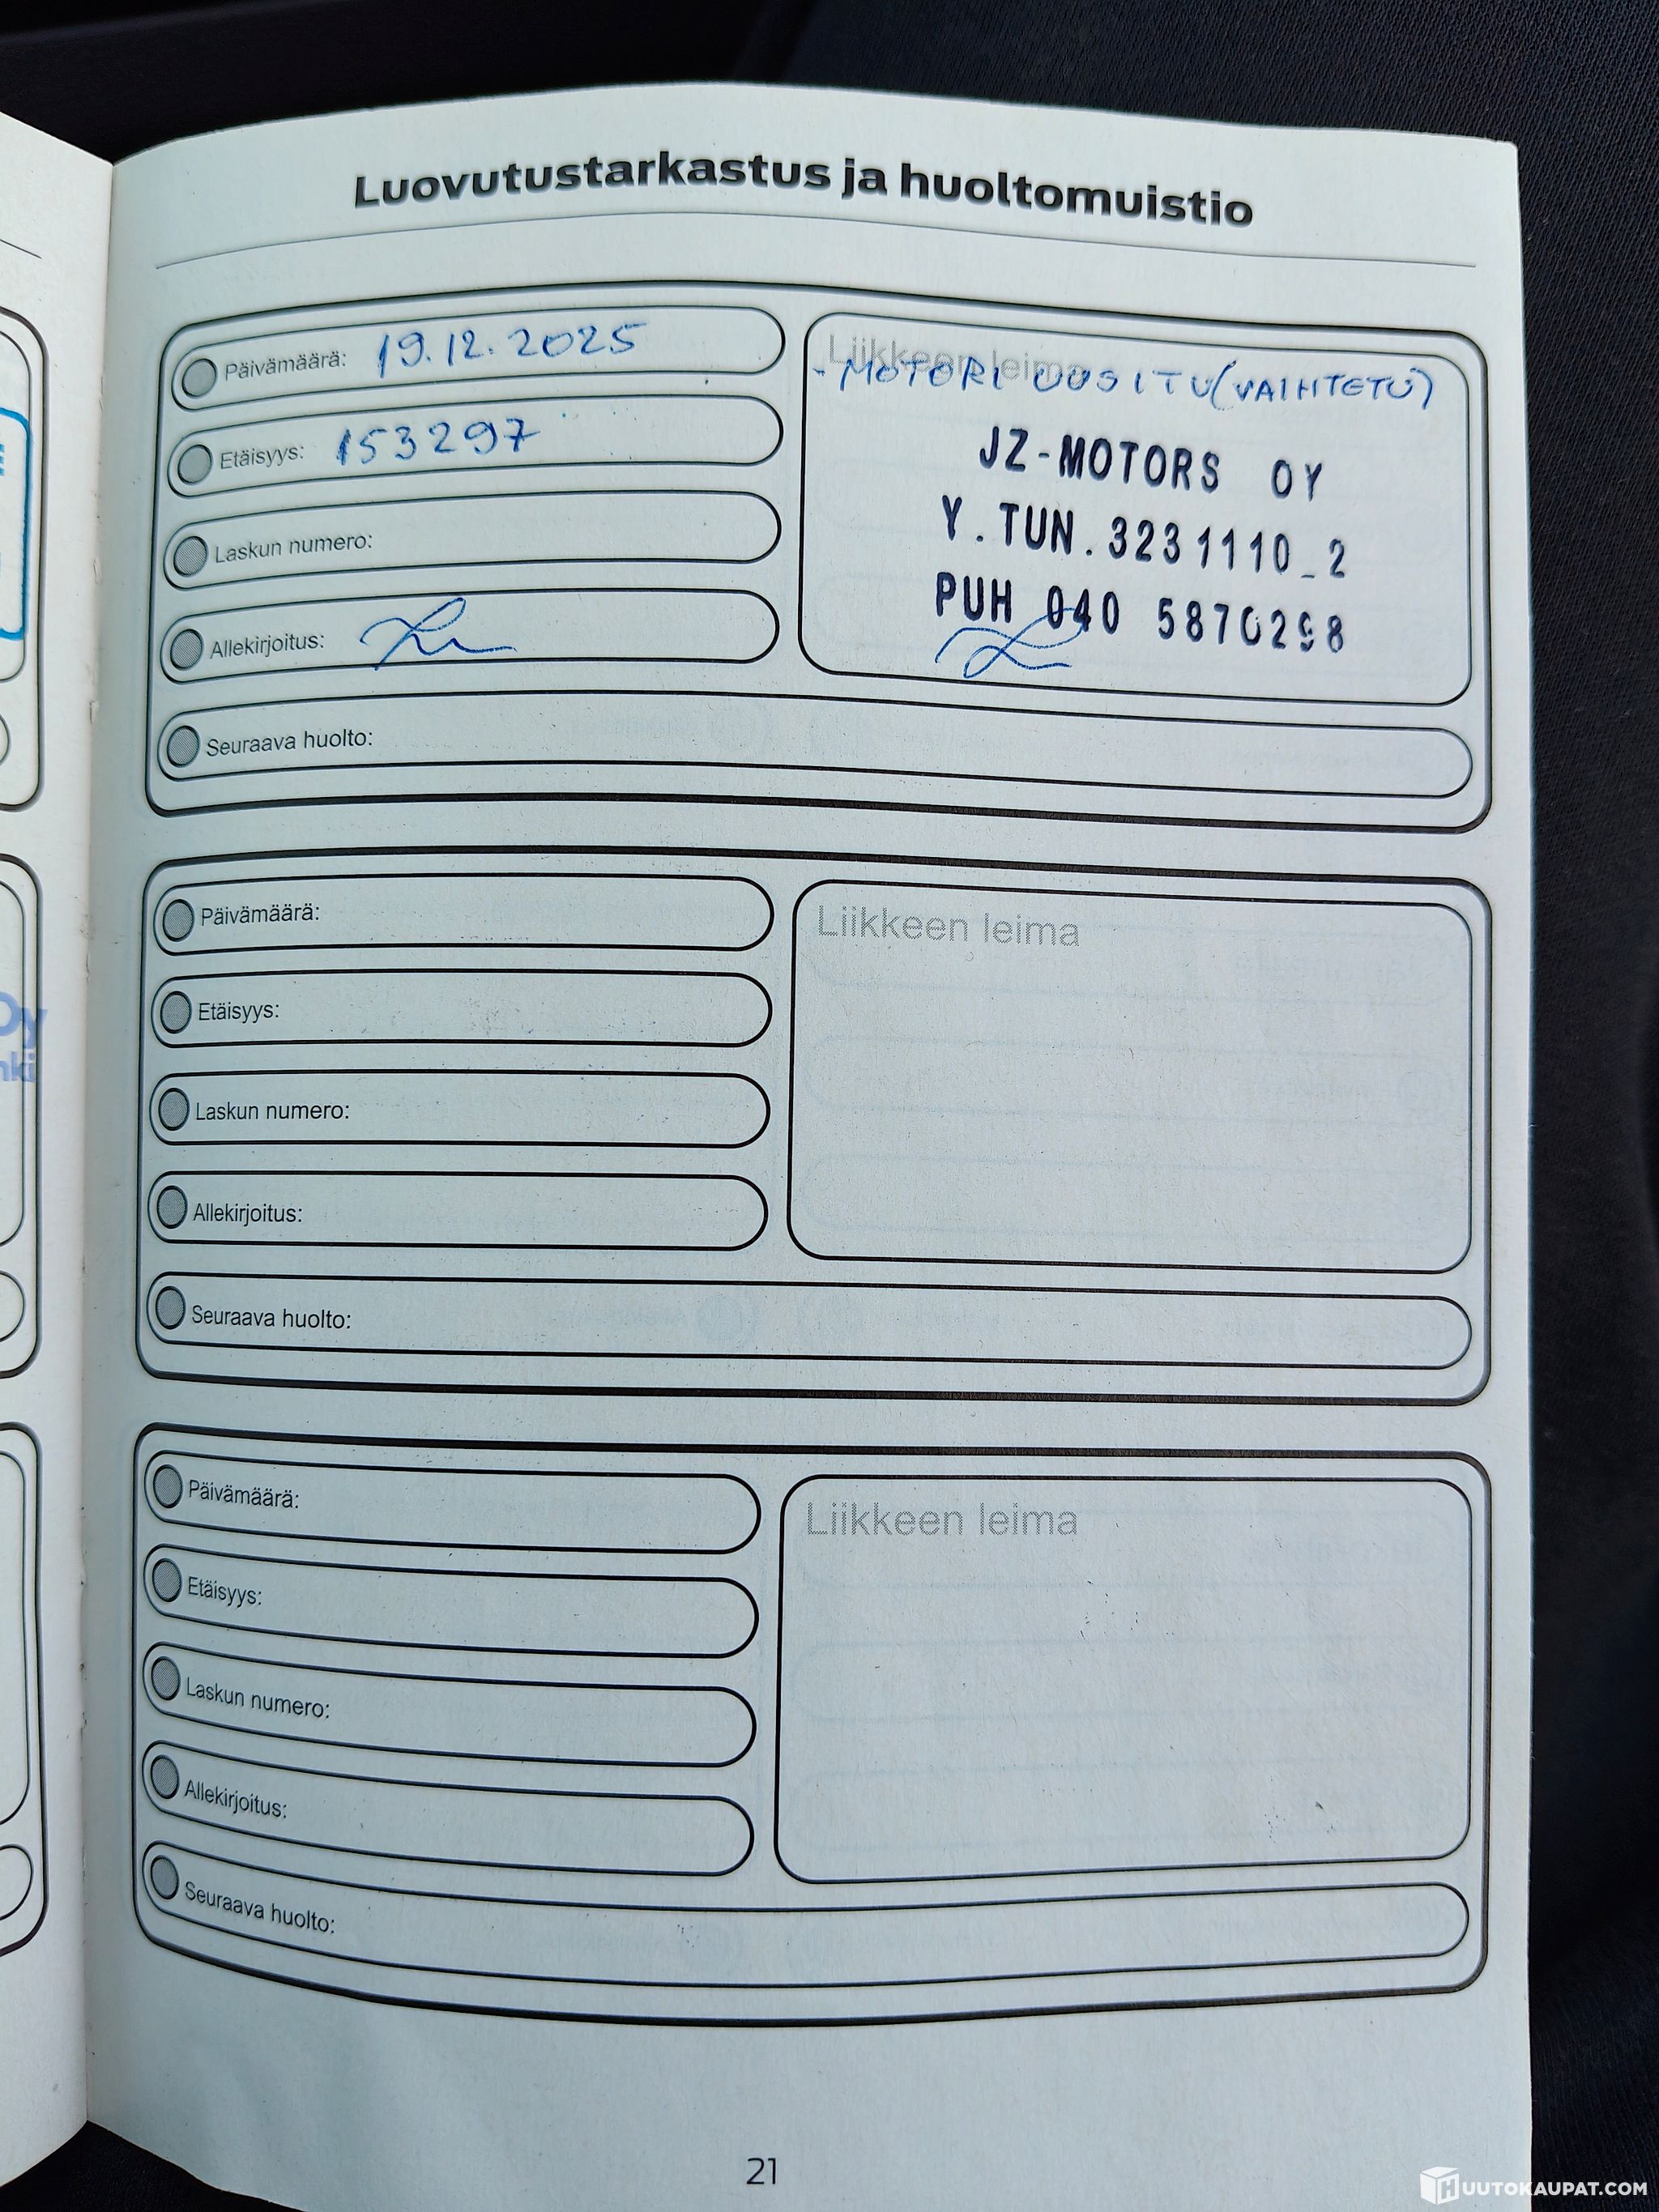 Luovutustarkastus ja huoltomuistio
Päivämäärä: 19.12.2025
Etäisyys: 153297
Laskun numero:
Allekirjoitus:
Liikkeen leima
- MOTORI UUSITU (VAIHTETU)
JZ-MOTORS OY
Y.TUN.3231110_2
PUH 040 5870298
Seuraava huolto:
Päivämäärä:
Etäisyys:
Laskun numero:
Allekirjoitus:
Liikkeen leima
Seuraava huolto:
Päivämäärä:
Etäisyys:
Laskun numero:
Allekirjoitus:
Liikkeen leima
Seuraava huolto:
21
Oy
nki
HUUTOKAUPAT.COM